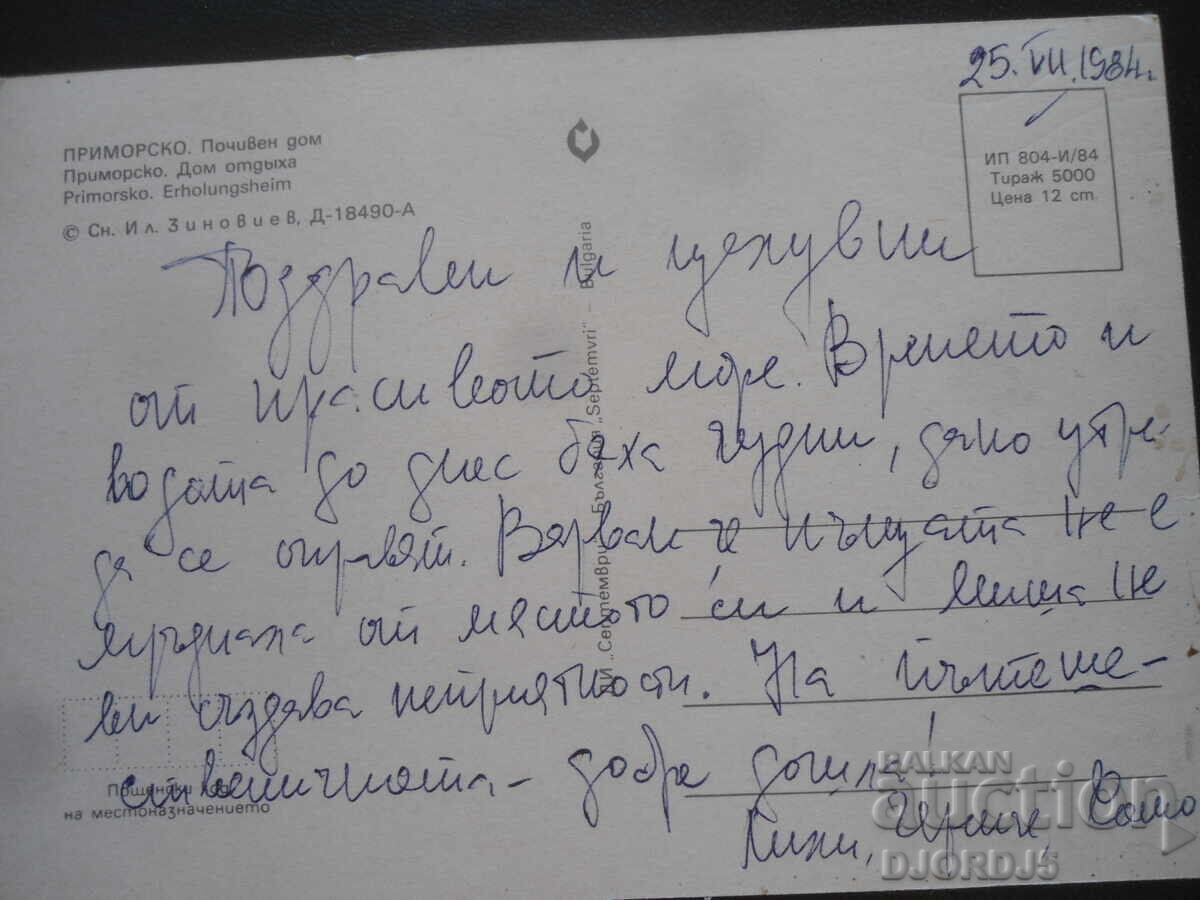 25.VII.1984г.
ПРИМОРСКО. Почивен дом
Приморско. Дом отдыха
Primorsko. Erholungsheim
© Сн. Ил. Зиновиев, Д-18490-А
ИП 804-И/84
Тираж 5000
Цена 12 ст.
ДИ „Септември" – България „Septemvri" – Bulgaria
Поздрави и целувки
от красивото море. Времето и
водата до днес бяха чудни, дано утре
да се оправят. Вярвам че къщата не е
мръднала от мястото си и Миша не
ви създава неприятности. На пътеше-
ственичката – добре дошла!
Пощенски код
на местоназначението
BALKAN
auction
DJORDJ5